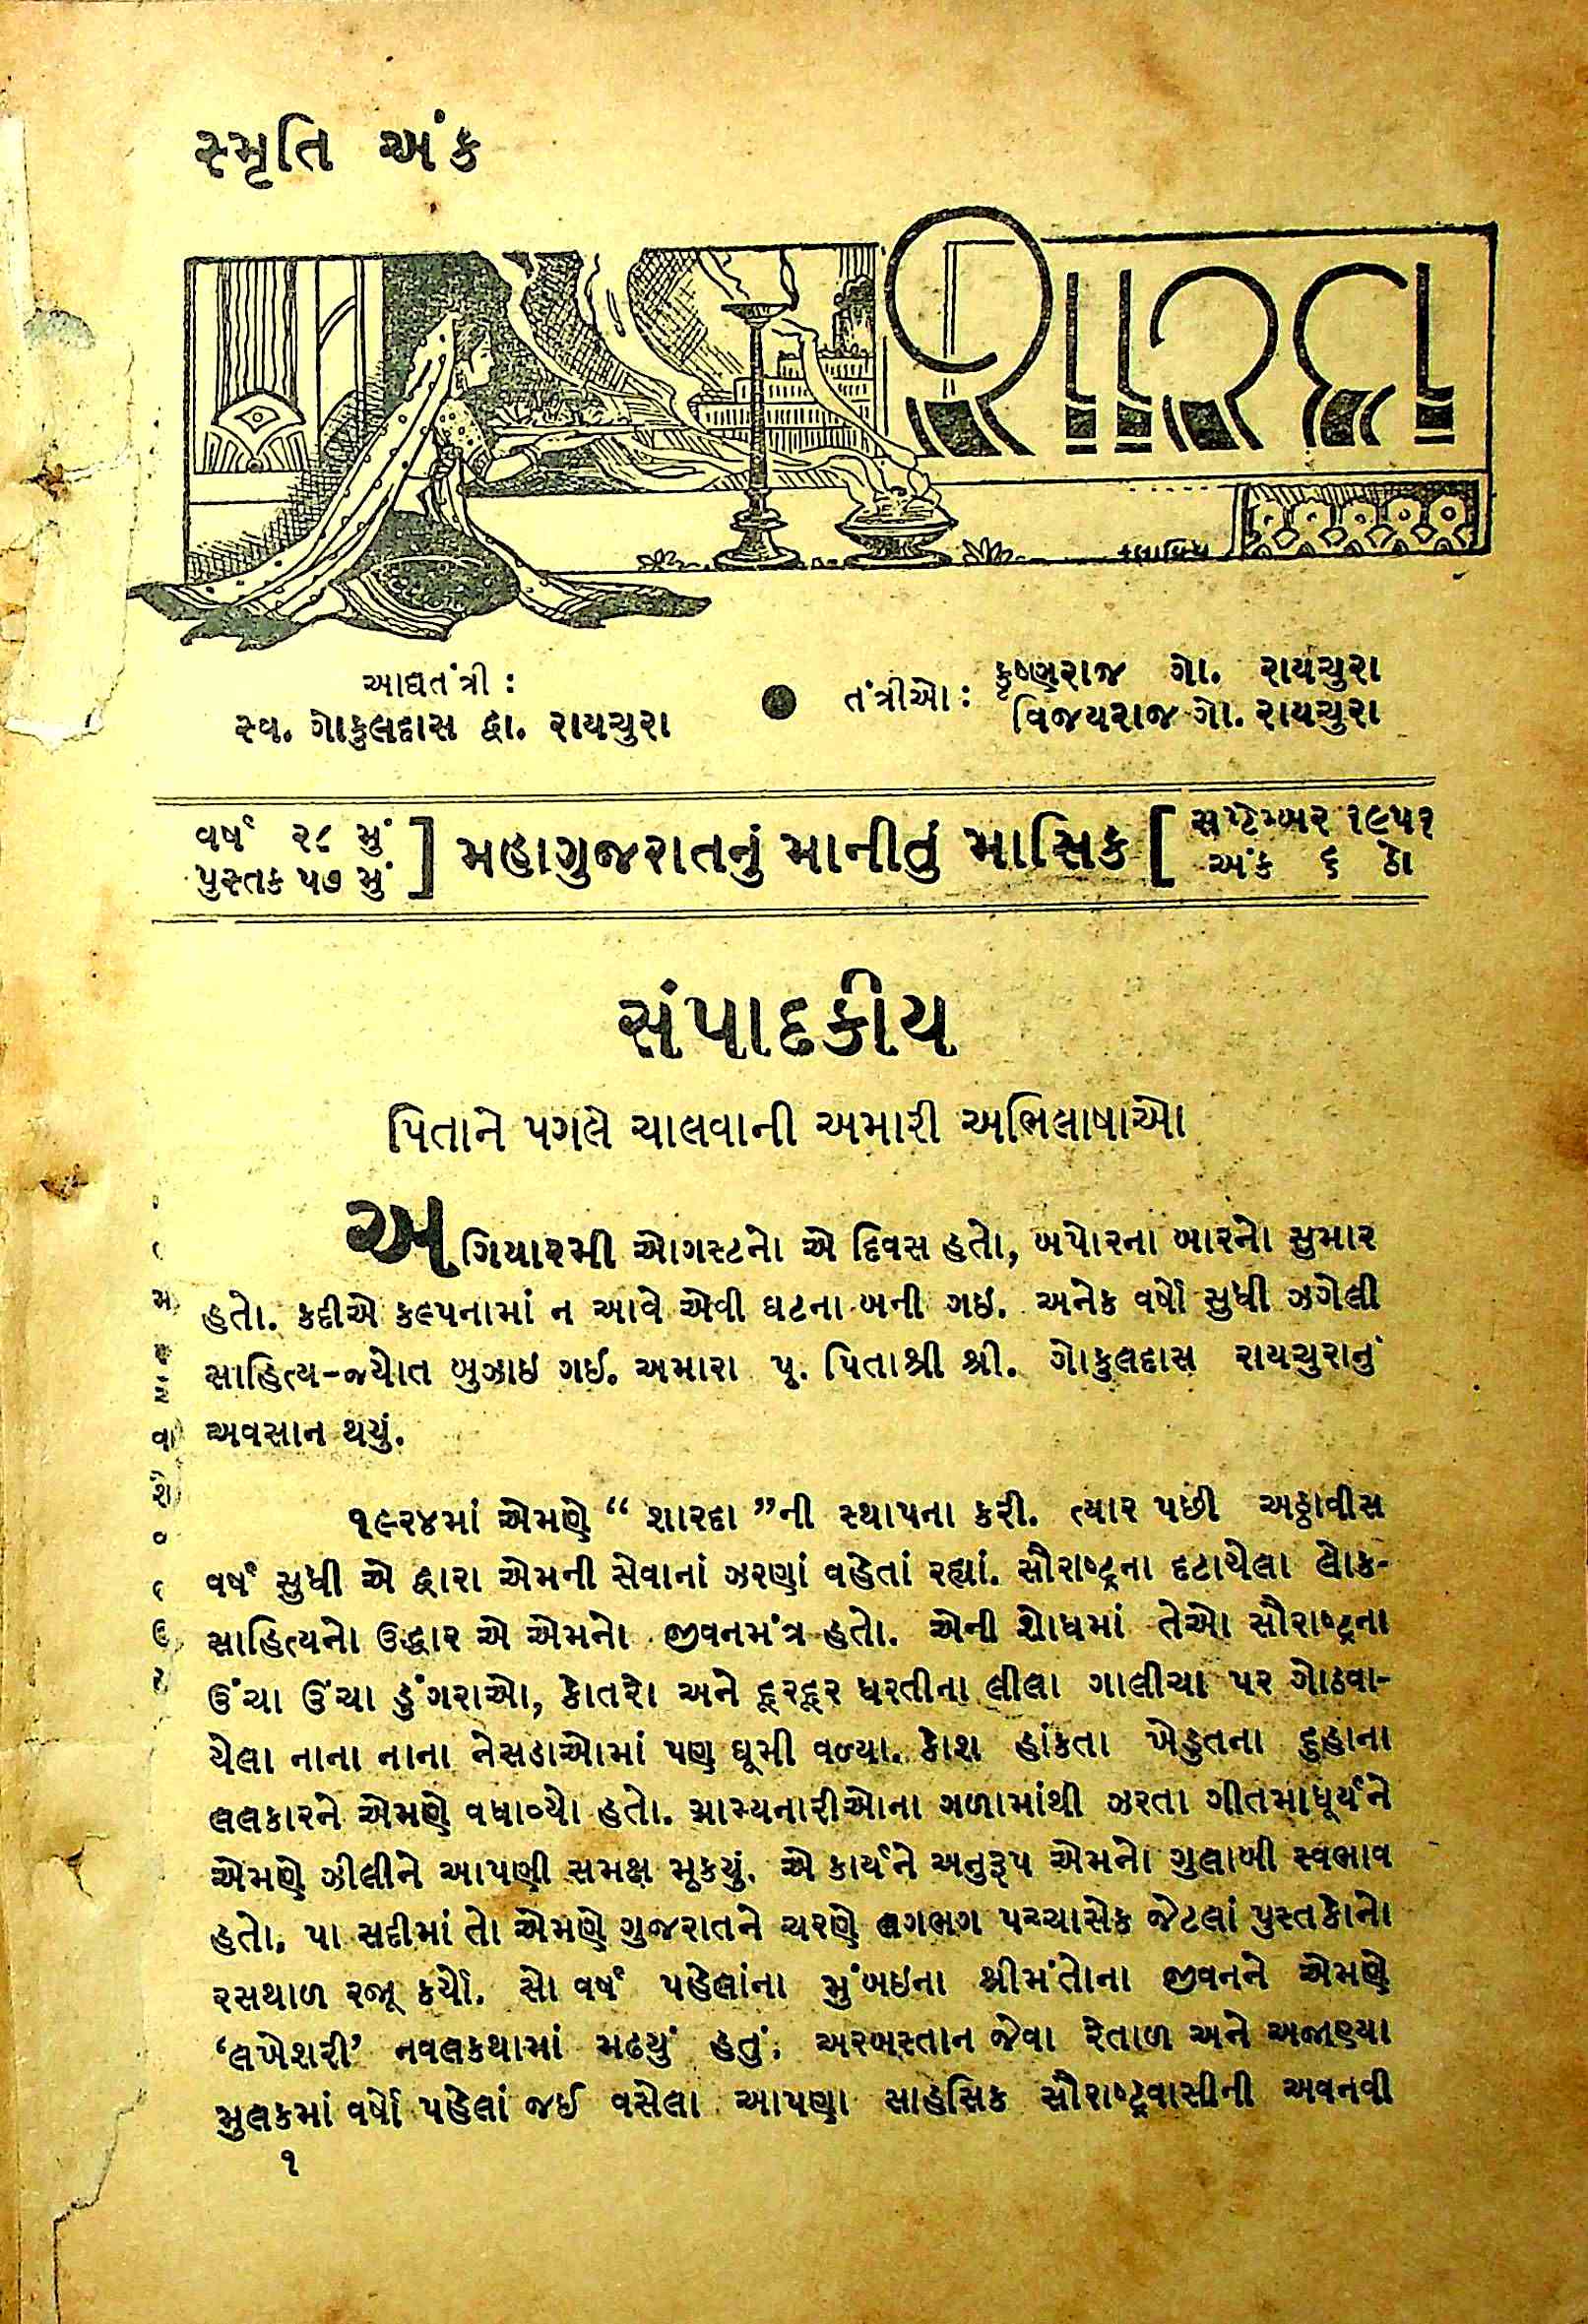 સ્મૃતિ અંક
શારદા
આદ્યતંત્રી :
સ્વ. ગોકુલદાસ દ્વા. રાયચુરા
તંત્રીઓ : કૃષ્ણરાજ ગો. રાયચુરા
વિજયરાજ ગો. રાયચુરા
વર્ષ ૨૮ મું
પુસ્તક ૫૭ મું ] મહાગુજરાતનું માનીતું માસિક [ સપ્ટેમ્બર ૧૯૫૧
અંક ૬ ઠ્ઠો
સંપાદકીય
પિતાને પગલે ચાલવાની અમારી અભિલાષાઓ
અગિયારમી ઓગસ્ટનો એ દિવસ હતો, બપોરના બારનો સુમાર
હતો. કદીએ કલ્પનામાં ન આવે એવી ઘટના બની ગઇ. અનેક વર્ષો સુધી ઝગેલી
સાહિત્ય-જ્યોત બુઝાઇ ગઈ. અમારા પૂ. પિતાશ્રી શ્રી. ગોકુલદાસ રાયચુરાનું
અવસાન થયું.
૧૯૨૪માં એમણે “ શારદા ”ની સ્થાપના કરી. ત્યાર પછી અઠ્ઠાવીસ
વર્ષ સુધી એ દ્વારા એમની સેવાનાં ઝરણાં વહેતાં રહ્યાં. સૌરાષ્ટ્રના દટાયેલા લોક-
સાહિત્યનો ઉદ્ધાર એ એમનો જીવનમંત્ર હતો. એની શોધમાં તેઓ સૌરાષ્ટ્રના
ઉંચા ઉંચા ડુંગરાઓ, કોતરો અને દૂરદૂર ધરતીના લીલા ગાલીચા પર ગોઠવા-
યેલા નાના નાના નેસડાઓમાં પણ ઘૂમી વળ્યા. કોશ હાંકતા ખેડુતના દુહાના
લલકારને એમણે વધાવ્યો હતો. ગ્રામ્યનારીઓના ગળામાંથી ઝરતા ગીતમાધૂર્યને
એમણે ઝીલીને આપણી સમક્ષ મૂક્યું. એ કાર્યને અનુરૂપ એમનો ગુલાબી સ્વભાવ
હતો. પા સદીમાં તો એમણે ગુજરાતને ચરણે લગભગ પચ્ચાસેક જેટલાં પુસ્તકોનો
રસથાળ રજૂ કર્યો. સો વર્ષ પહેલાંના મુંબઇના શ્રીમંતોના જીવનને એમણે
‘લખેશરી’ નવલકથામાં મઢયું હતું; અરબસ્તાન જેવા રેતાળ અને અજાણ્યા
મુલકમાં વર્ષો પહેલાં જઈ વસેલા આપણા સાહસિક સૌરાષ્ટ્રવાસીની અવનવી
૧